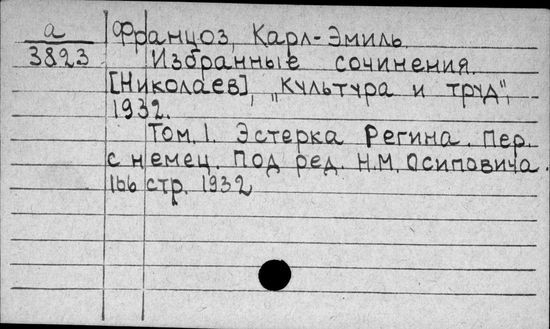 а
3823
Француз, Карл-Эмиль.
Избранные сочинения.
[Николаев], „Культура и труд",
1932.
Том. 1. Эстерка Регина. Пер.
с немец. под ред. Н.М. Осиповича.
166 стр. 1932